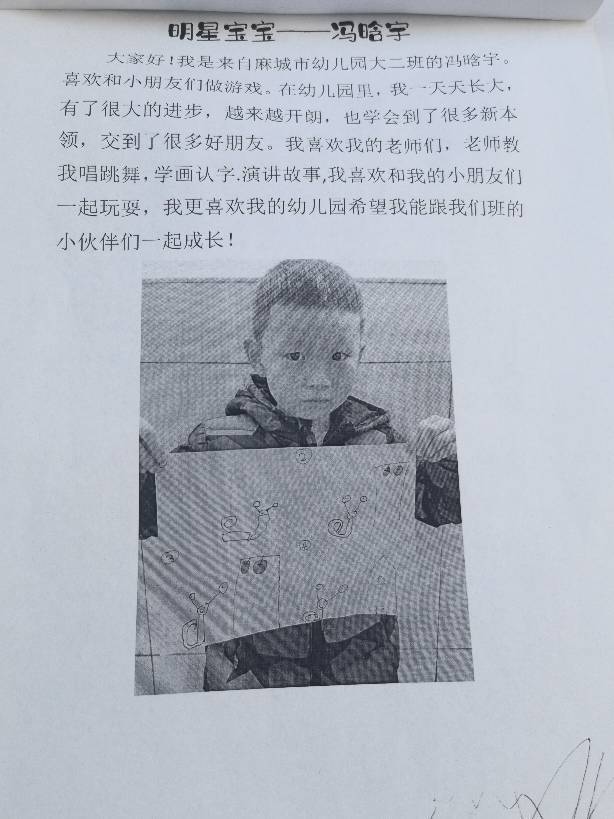 明星宝宝——冯晗宇
大家好!我是来自麻城市幼儿园大二班的冯晗宇。
喜欢和小朋友们做游戏。在幼儿园里，我一天天长大，
有了很大的进步，越来越开朗，也学会到了很多新本
领，交到了很多好朋友。我喜欢我的老师们，老师教
我唱跳舞，学画认字.演讲故事,我喜欢和我的小朋友们
一起玩耍，我更喜欢我的幼儿园希望我能跟我们班的
小伙伴们一起成长！
②
③
④